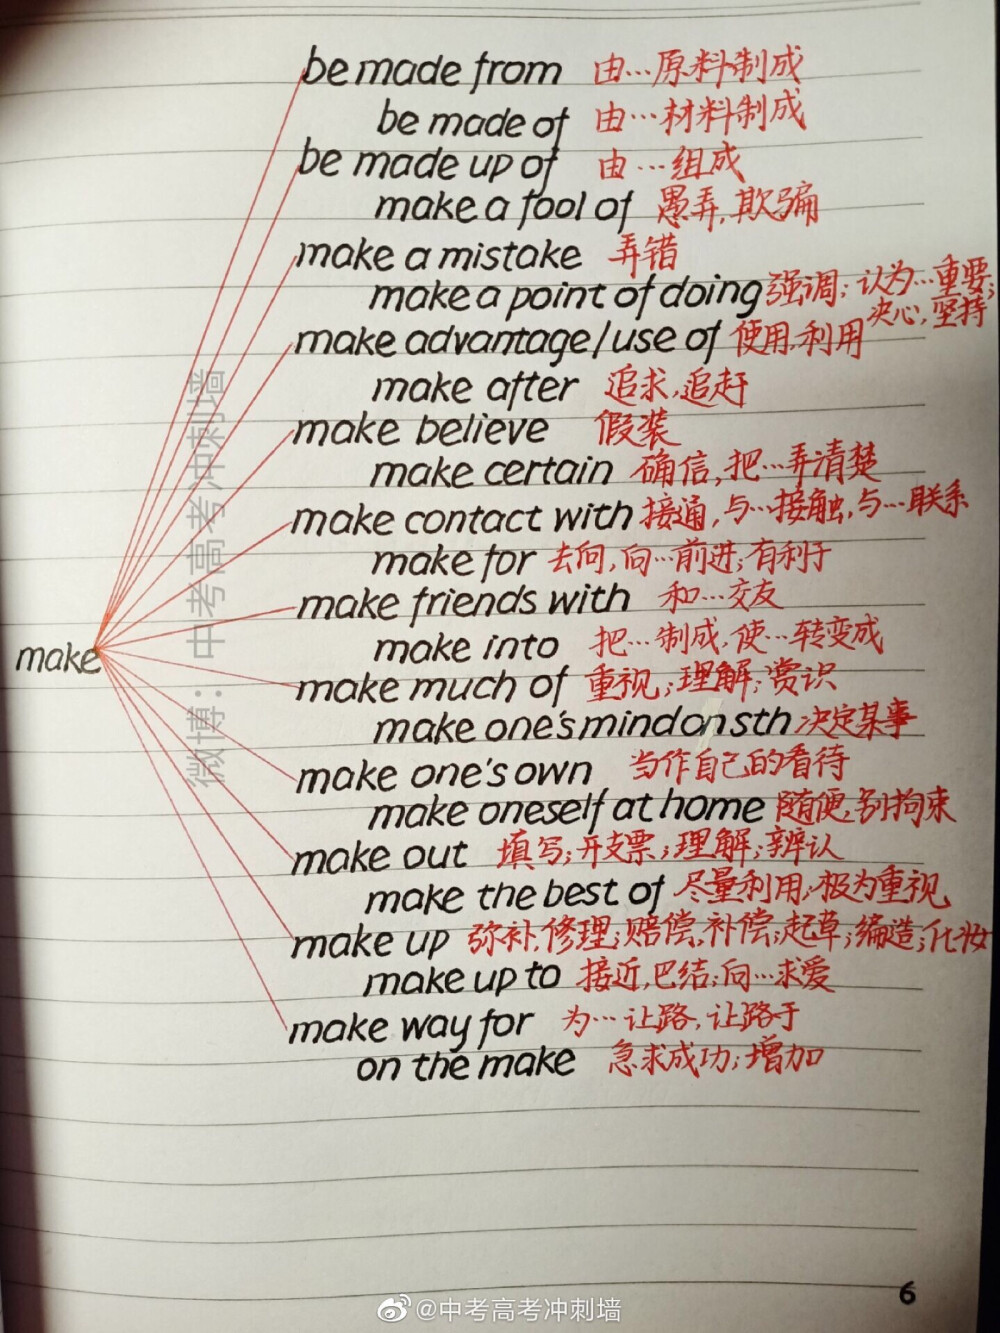 be made from 由…原料制成
be made of 由…材料制成
be made up of 由…组成
make a fool of 愚弄,欺骗
make a mistake 弄错
make a point of doing 强调;认为…重要;
决心,坚持
make advantage/use of 使用,利用
make after 追求,追赶
make believe 假装
make certain 确信,把…弄清楚
make contact with 接通,与…接触,与…联系
make for 去向,向…前进;有利于
make friends with 和…交友
make into 把…制成,使…转变成
make
make much of 重视;理解;赏识
make one's mind on sth 决定某事
make one's own 当作自己的看待
make oneself at home 随便,别拘束
make out 填写;开支票;理解;辨认
make the best of 尽量利用;极为重视
make up 弥补,修理;赔偿,补偿;起草;编造;化妆
make up to 接近,巴结;向…求爱
make way for 为…让路,让路于
on the make 急求成功;增加
微博：中考高考冲刺墙
6
@中考高考冲刺墙